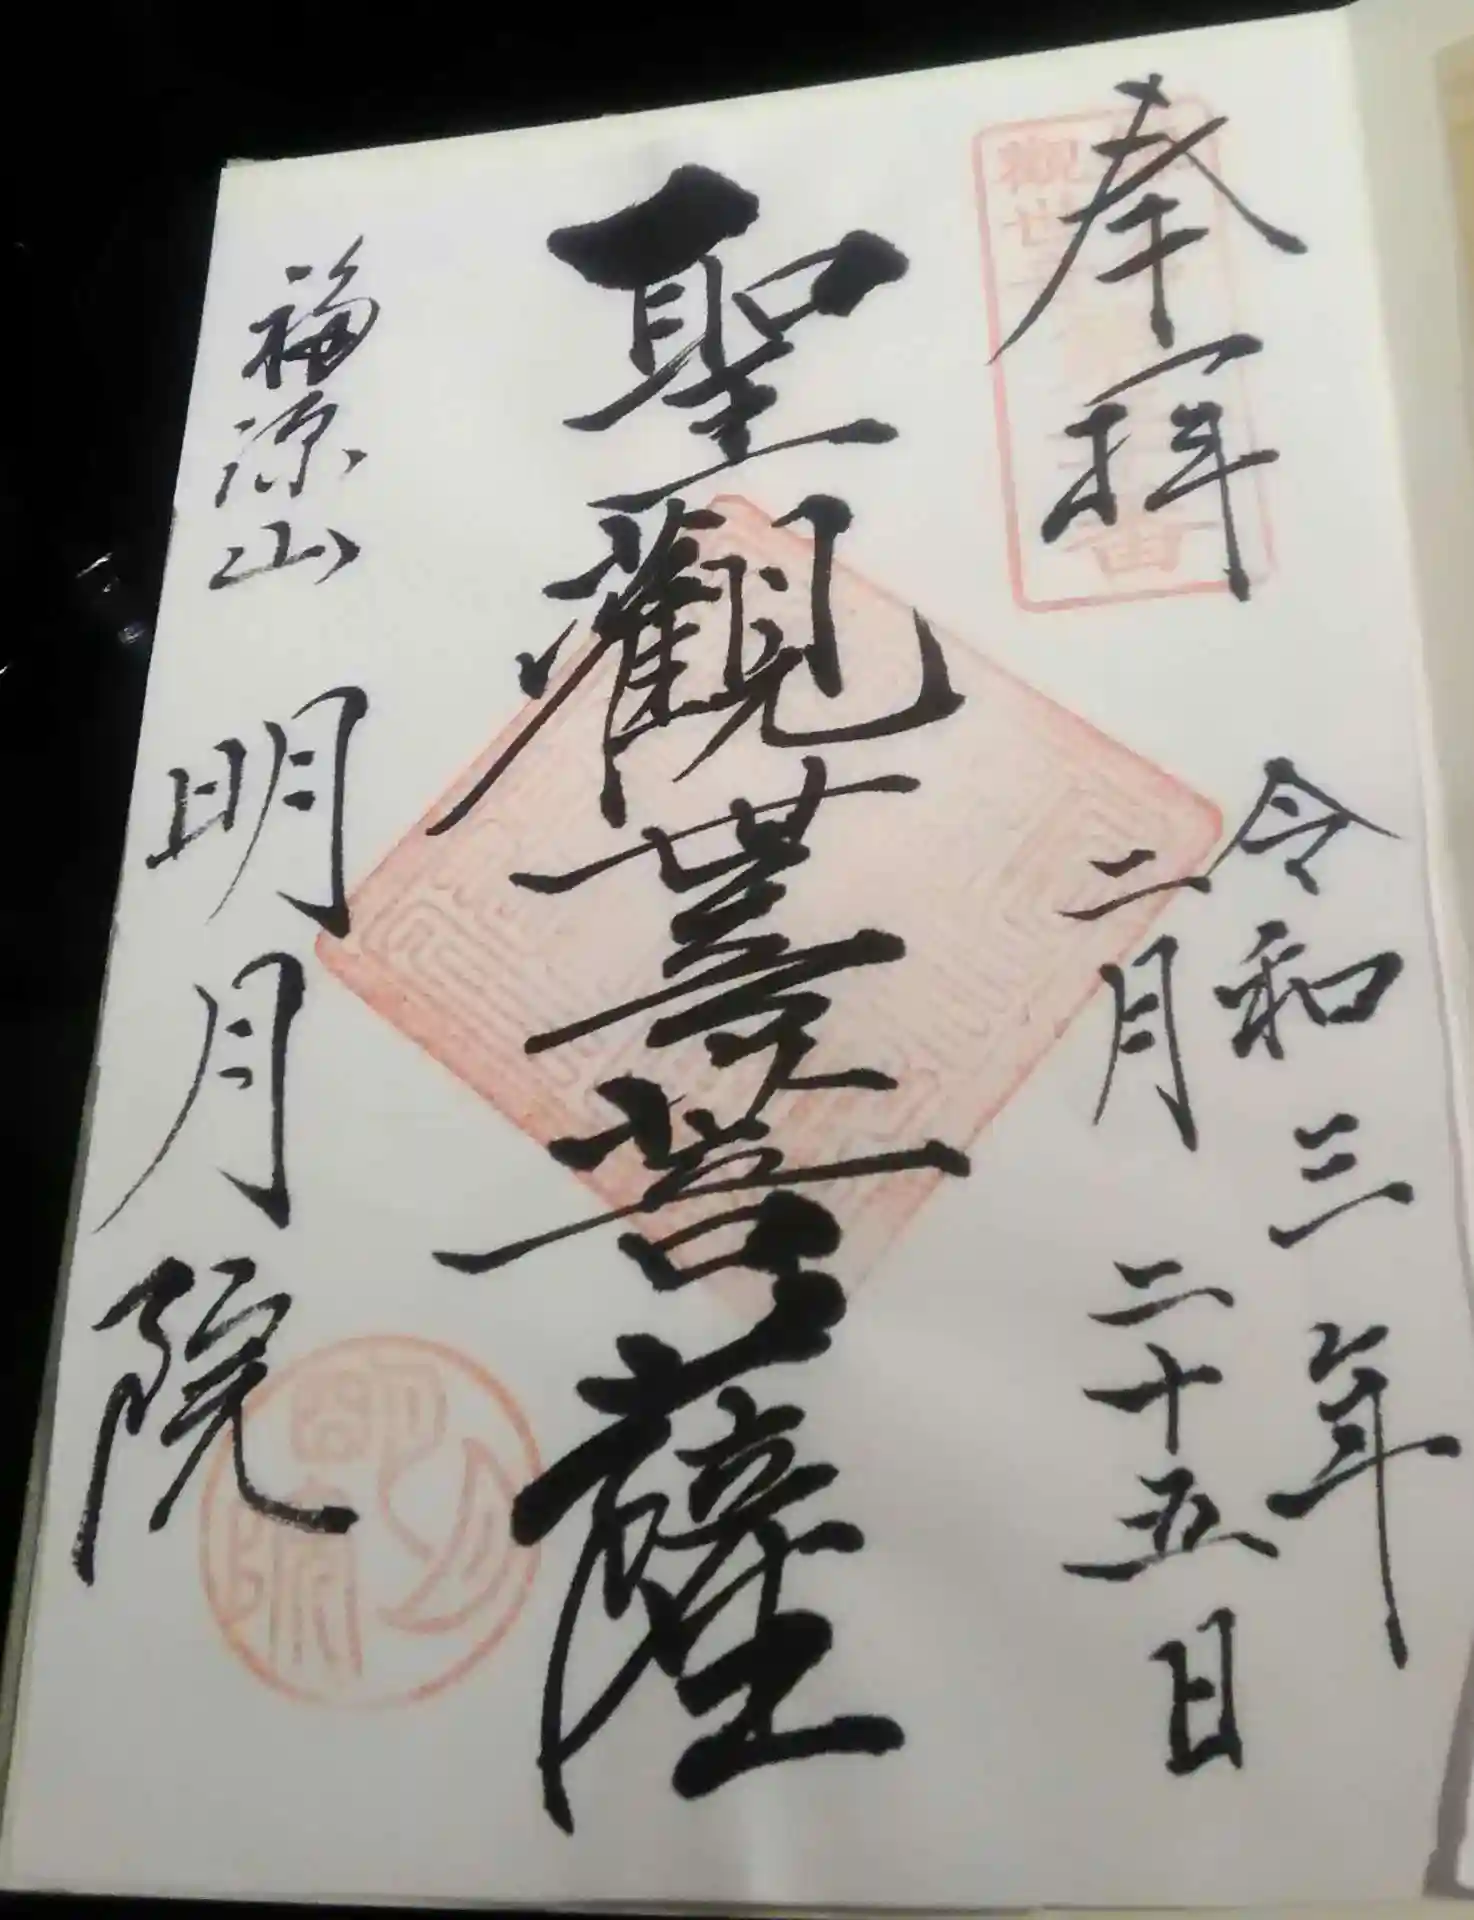 奉拝
令和三年
二月二十五日
聖觀世音菩薩
福源山 明月院